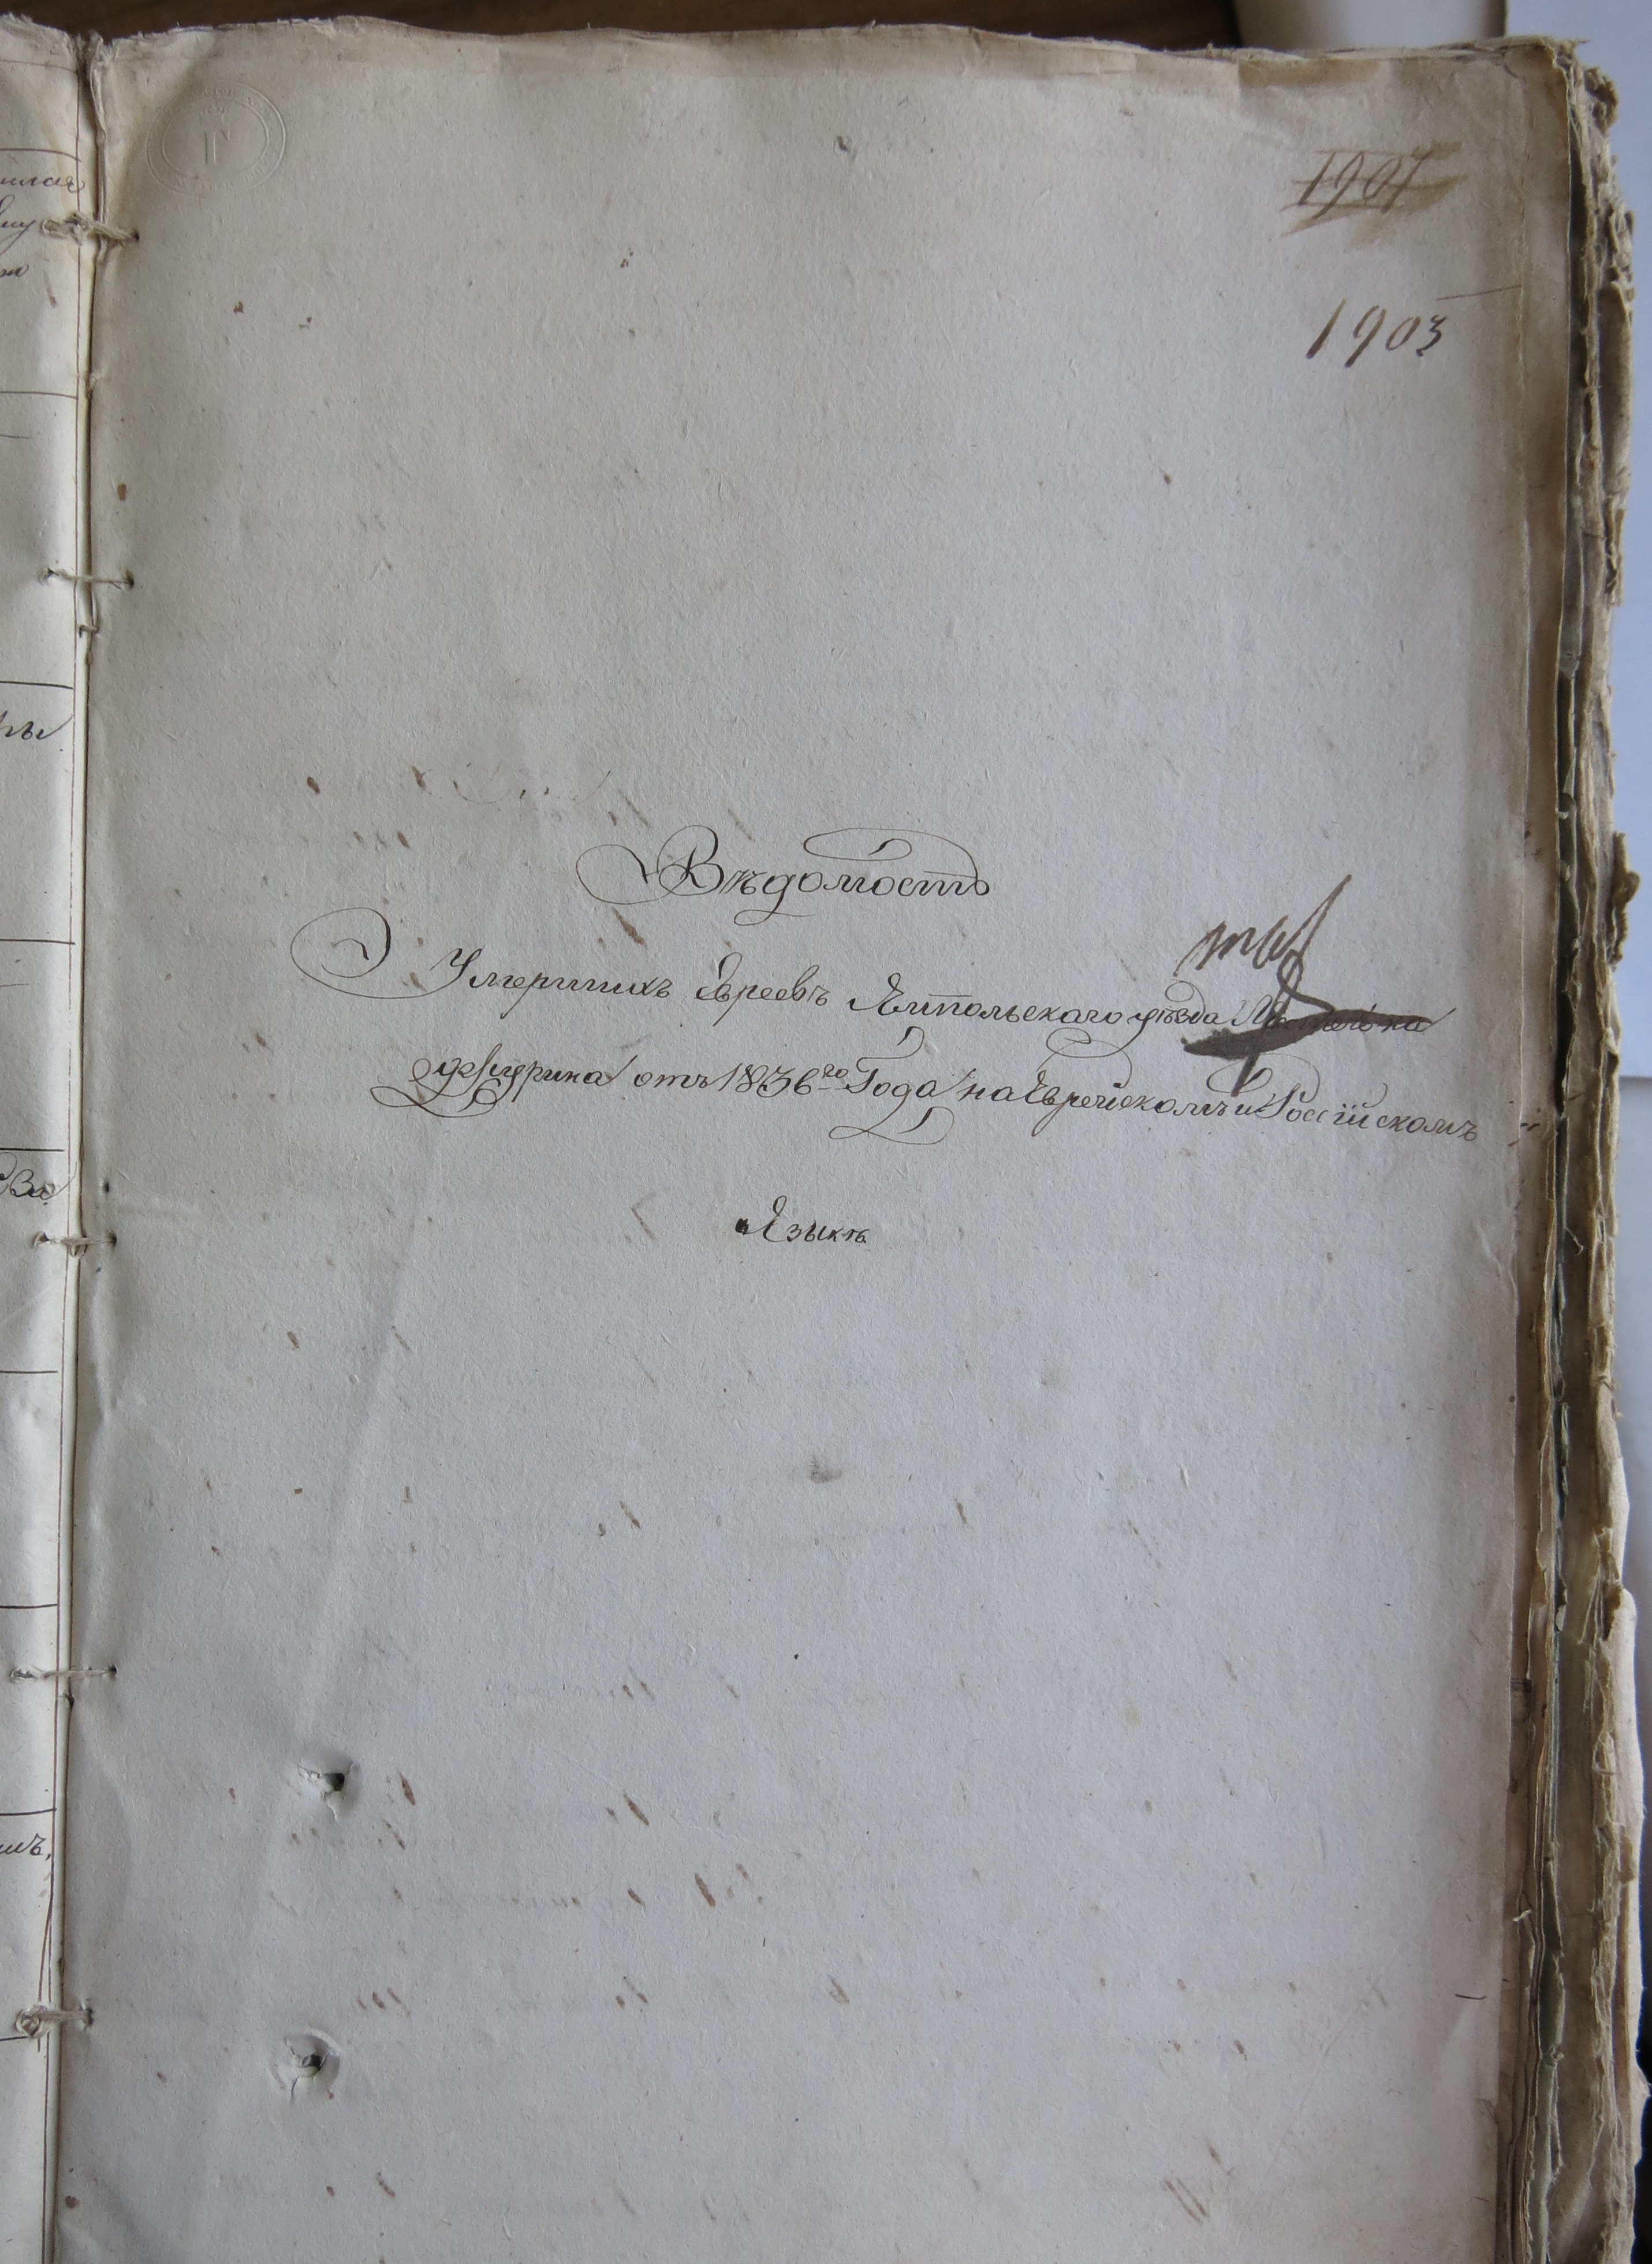 1901
1903
Вѣдомость
О Умершихъ Евреевъ Ямпольскаго уѣзда Мѣстечка
Джурина отъ 1836го Года на Еврейскомъ и Россїйскомъ
Языкѣ